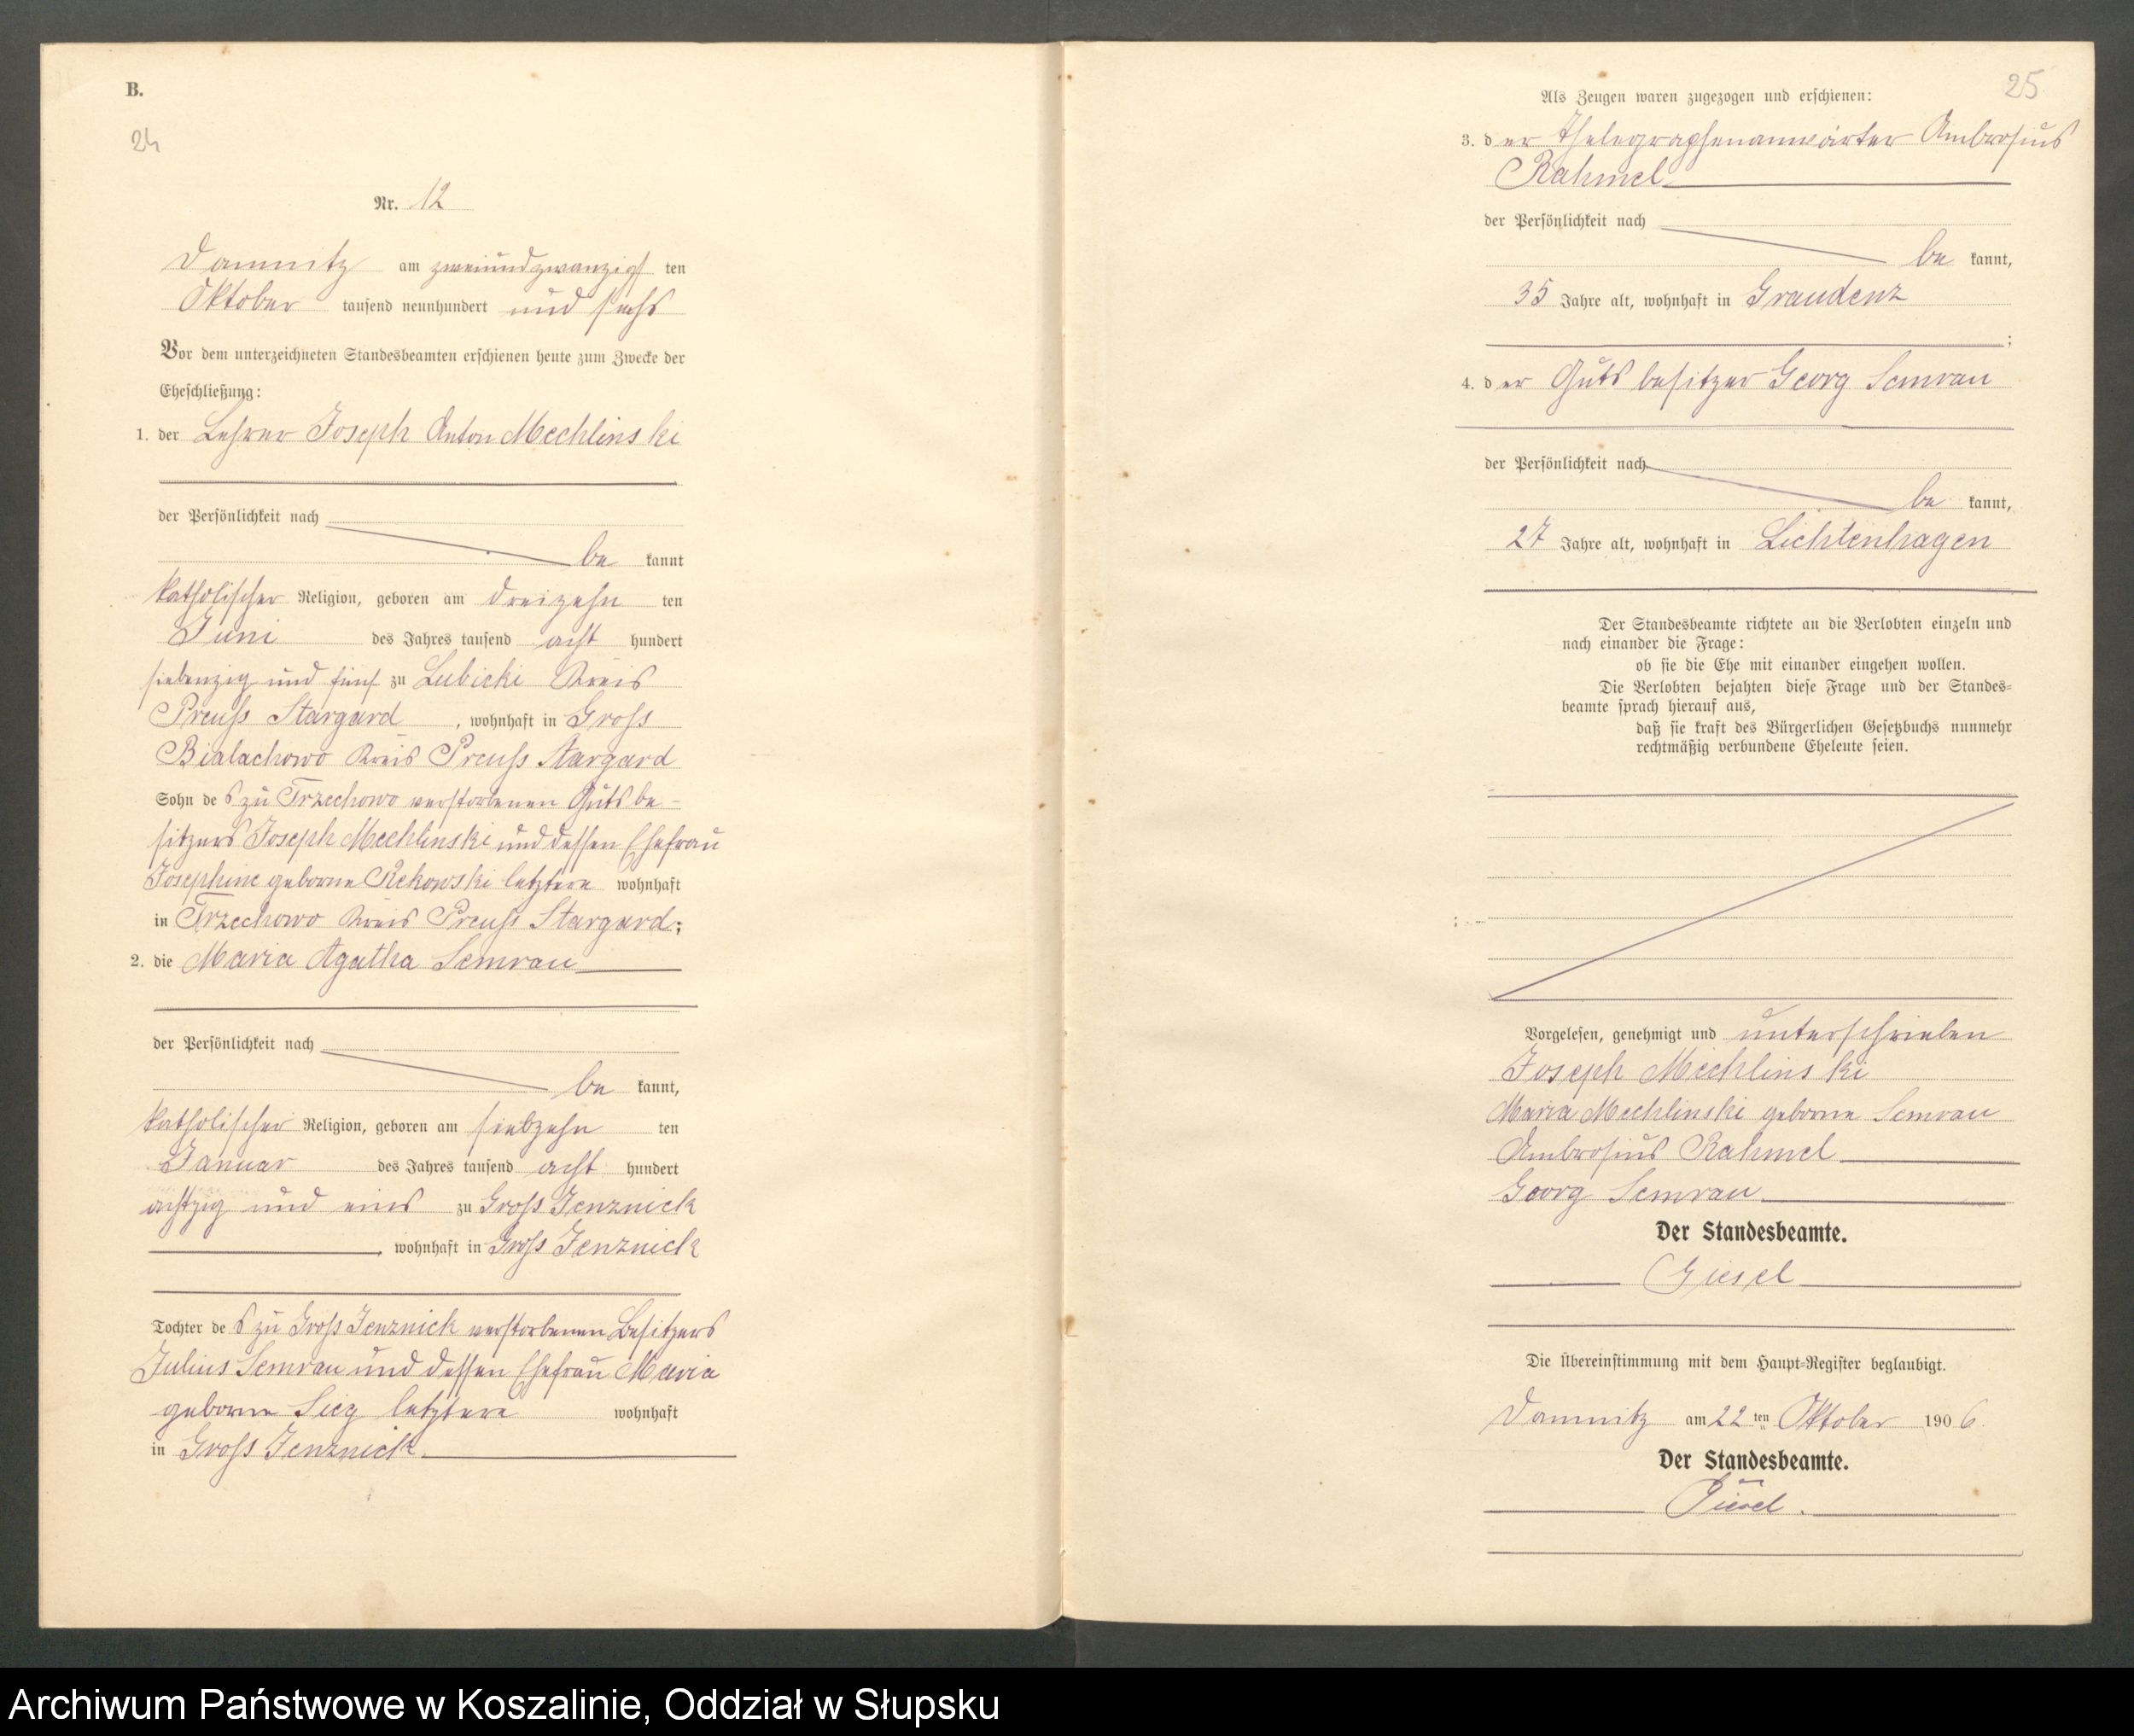 B.
24
Nr. 12
Damnitz am zweiundzwanzigsten
Oktober tausend neunhundert und sechs
Vor dem unterzeichneten Standesbeamten erschienen heute zum Zwecke der
Eheschließung:
1. der Lehrer Joseph Anton Mechlinski
der Persönlichkeit nach
be kannt
katholischer Religion, geboren am dreizehn ten
Juni des Jahres tausend acht hundert
siebenzig und fünf zu Lubicki Kreis
Preuss Stargard, wohnhaft in Gross
Bialachowo Kreis Preuss Stargard
Sohn des zu Trzechowo verstorbenen Gutsbe-
sitzers Joseph Mechlinski und dessen Ehefrau
Josephine geborne Rekowski letztere wohnhaft
in Trzechowo Kreis Preuss Stargard;
2. die Maria Agatha Semrau
der Persönlichkeit nach
be kannt,
katholischer Religion, geboren am siebzehn ten
Januar des Jahres tausend acht hundert
achtzig und eins zu Gross Jenznick
, wohnhaft in Gross Jenznick
Tochter des zu Gross Jenznick verstorbenen Besitzers
Julius Semrau und dessen Ehefrau Maria
geborne Sieg letztere wohnhaft
in Gross Jenznick
25
Als Zeugen waren zugezogen und erschienen:
3. der Thelegraphenanwärter Ambrosius
Rahmel
der Persönlichkeit nach
be kannt,
35 Jahre alt, wohnhaft in Graudenz
;
4. der Gutsbesitzer Georg Semrau
der Persönlichkeit nach
be kannt,
27 Jahre alt, wohnhaft in Lichtenhagen
Der Standesbeamte richtete an die Verlobten einzeln und
nach einander die Frage:
ob sie die Ehe mit einander eingehen wollen.
Die Verlobten bejahten diese Frage und der Standes-
beamte sprach hierauf aus,
daß sie kraft des Bürgerlichen Gesetzbuchs nunmehr
rechtmäßig verbundene Eheleute seien.
Vorgelesen, genehmigt und unterschrieben
Joseph Mechlinski
Maria Mechlinski geborne Semrau
Ambrosius Rahmel
Georg Semrau
Der Standesbeamte.
Giesel
Die Übereinstimmung mit dem Haupt-Register beglaubigt.
Damnitz am 22 ten Oktober 1906.
Der Standesbeamte.
Giesel.
Archiwum Państwowe w Koszalinie, Oddział w Słupsku